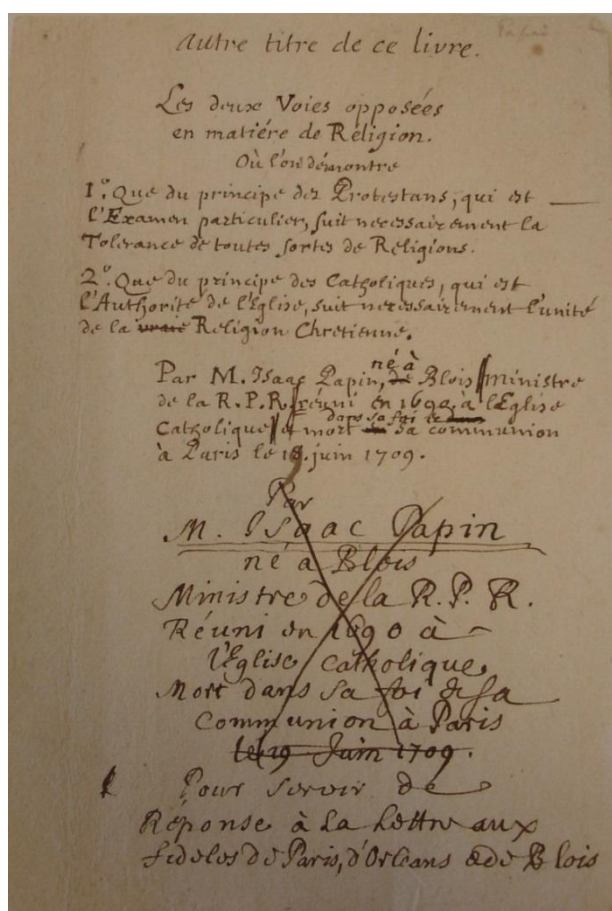 Papin
autre titre de ce livre.
Les deux Voies opposées
en matiére de Réligion.
Où l'on démontre
1.° Que du principe des Protestans, qui est
l'Examen particulier, suit necessairement la
Tolerance de toutes sortes de Religions.
2.° Que du principe des Catholiques, qui est
l'Authorité de l'Eglise, suit necessairement l'unité
de la vraie Religion Chretienne.
né à
Par M. Isaac Papin, de Blois Ministre
de la R. P. R. réuni en 1690, à l'Eglise
dans sa foi et
Catholique et mort sa communion
à Paris le 19. juin 1709.
Par
M. Isaac Papin
né à Blois
Ministre de la R. P. R.
Réuni en 1690 à
l'Eglise catholique
Mort dans sa foi & sa
Communion à Paris
le 19 Juin 1709.
Pour servir de
Réponse à la Lettre aux
fideles de Paris, d'Orleans & de Blois